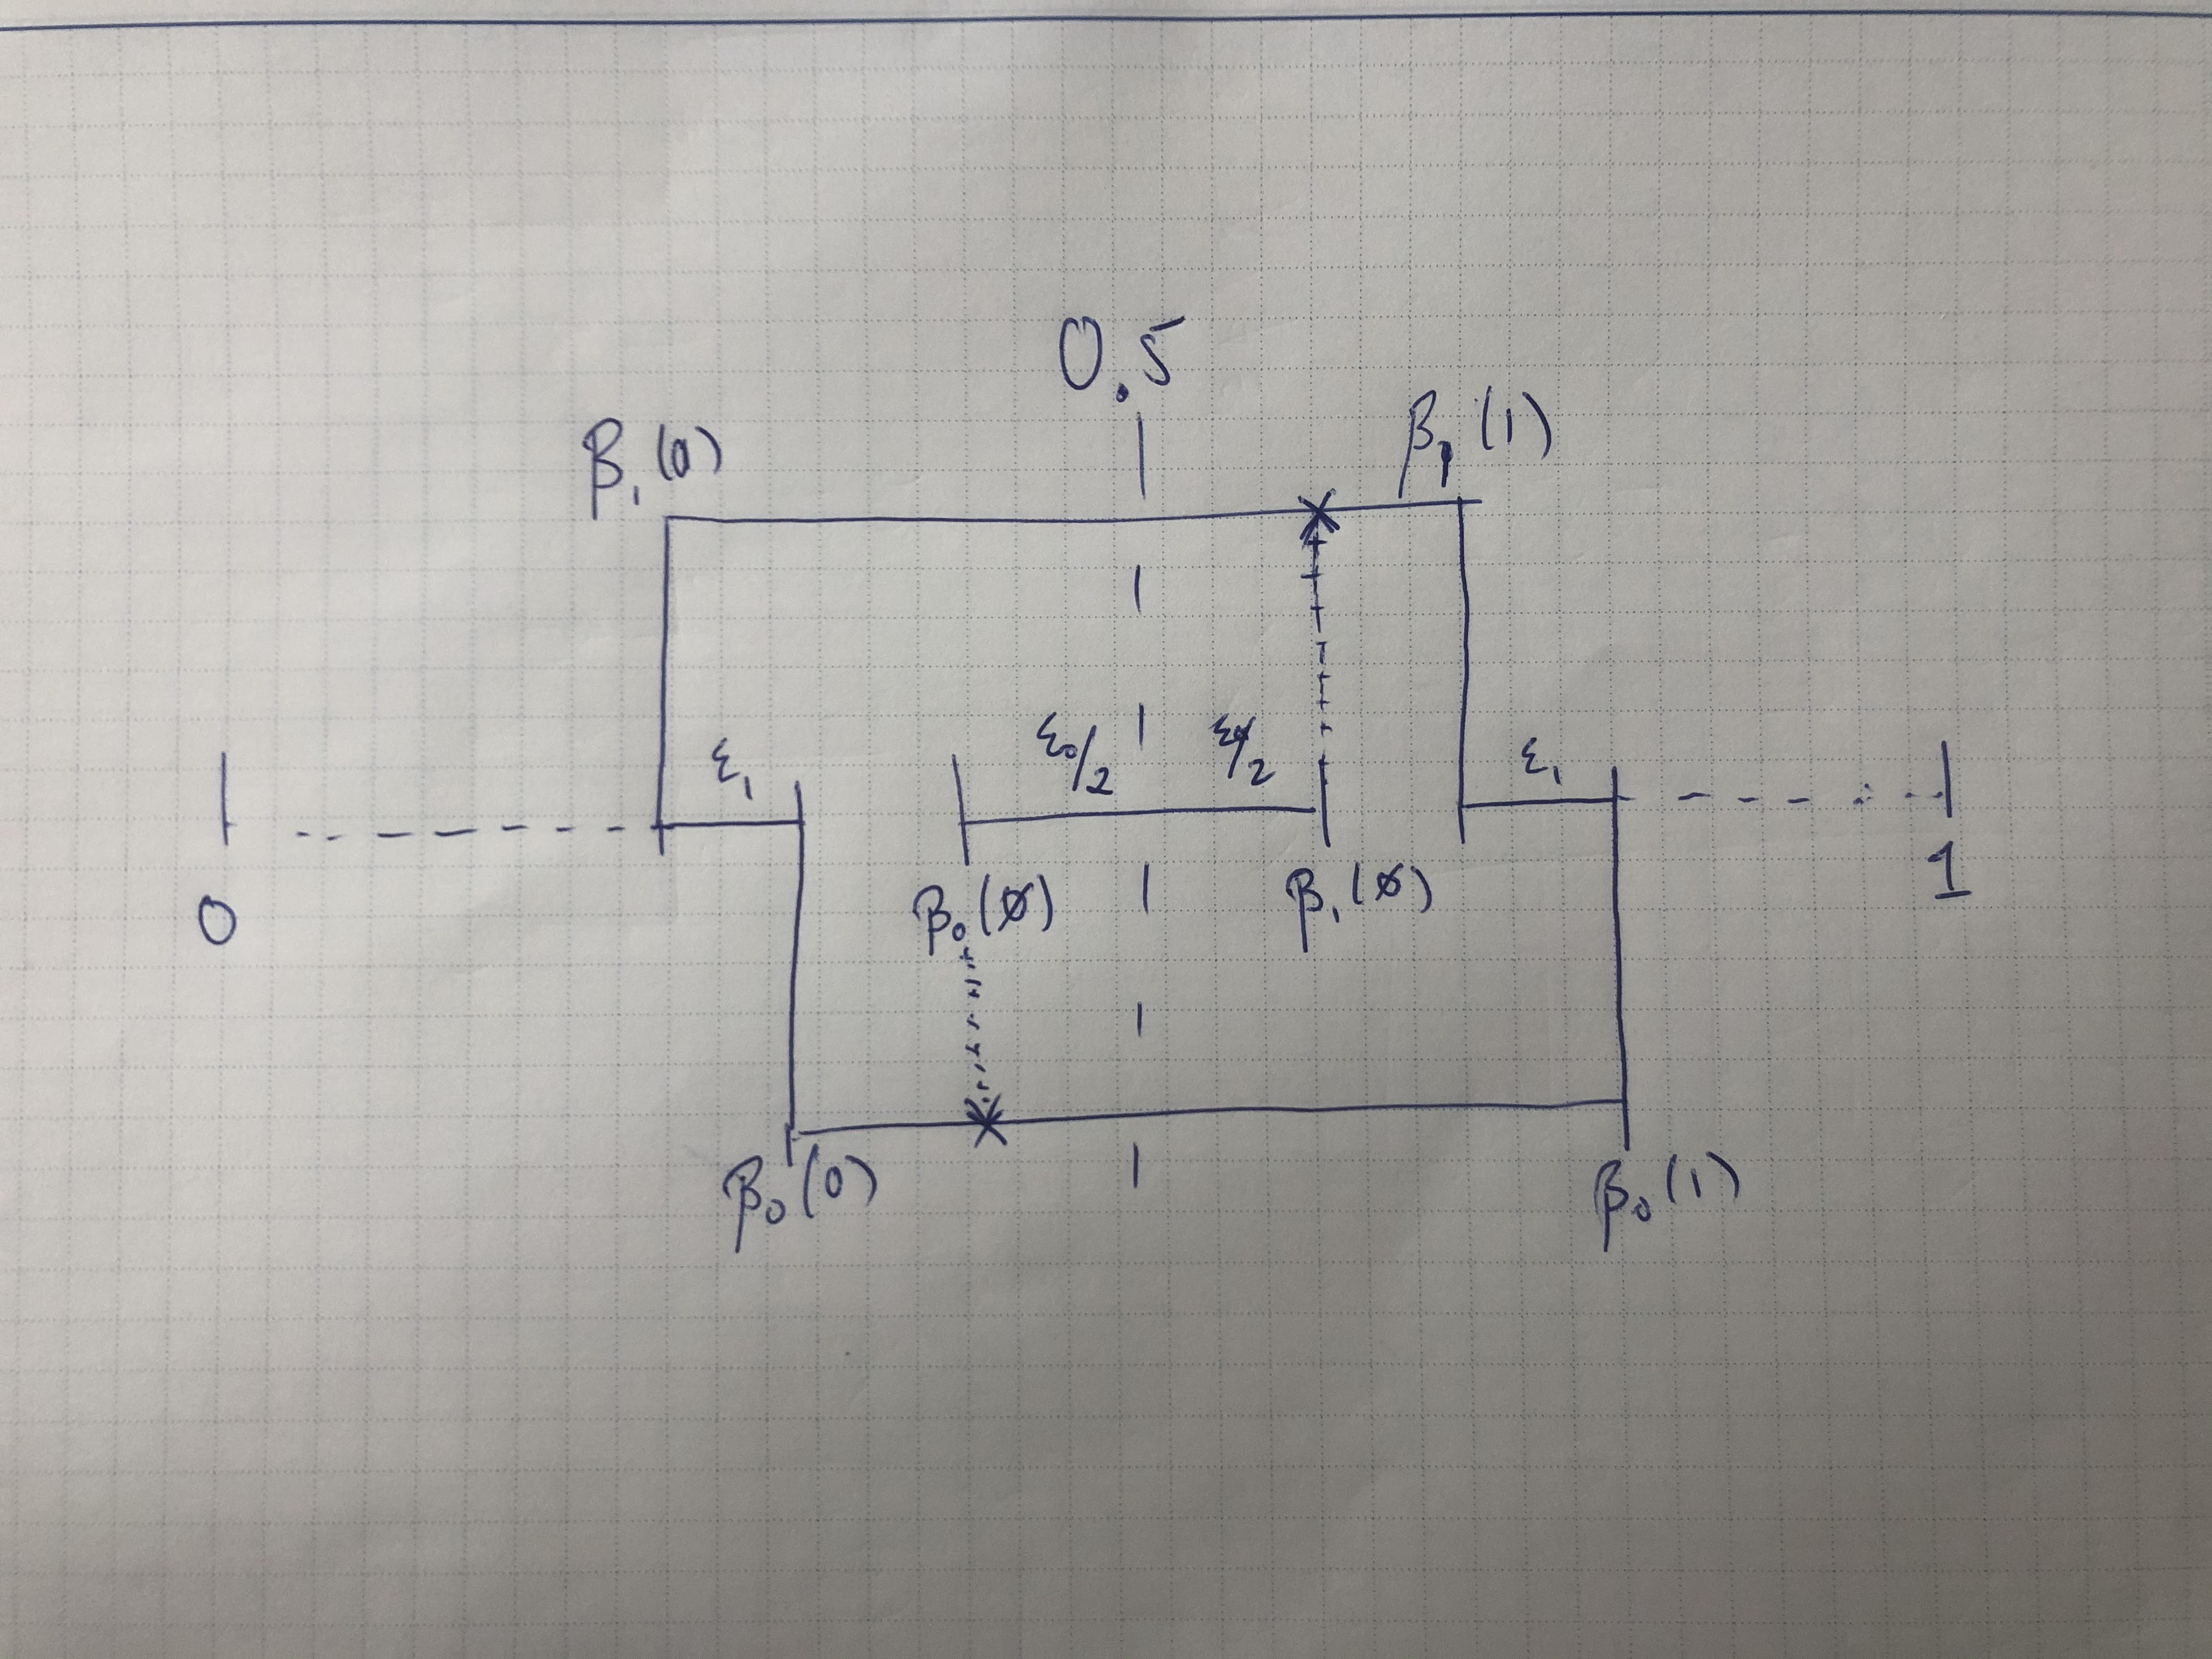 0.5
β₁(0) β₁(1)
ε₁ ε₀/2 ε₀/2 ε₁
0 β₀(∅) β₁(∅) 1
β₀(0) β₀(1)